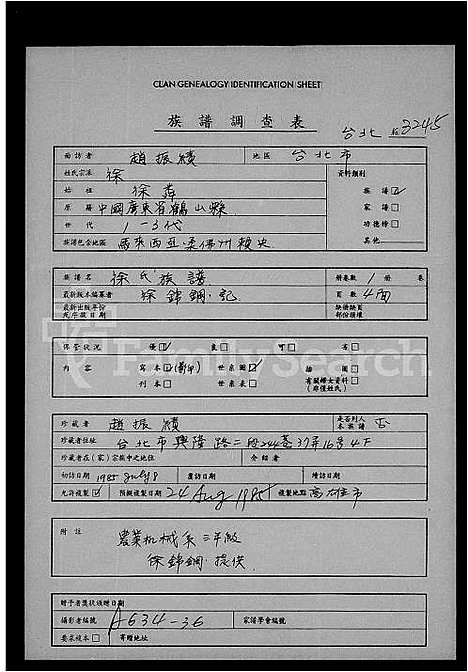 CLAN GENEALOGY IDENTIFICATION SHEET
族譜調查表
台北 3245
面訪者 趙振績 地區 台北市
姓氏宗派 徐 資料類別
始祖 徐 族譜
原籍 中國廣東省鶴山縣 家譜
世代 1-3代 功德榜
族譜包含地區 馬來西亞柔佛州 其他
族譜名 徐氏族譜 冊卷數 1 冊 卷
最新版本編纂者 徐錦鋼·記 頁數 4面
最新出版年份或年版日期 缺冊缺頁部份損壞
保管狀況 優 良 可 劣
內容 寫本 世系圖 插圖
刊本 世系表 有關婦女資料(非僅姓氏)
FamilySearch
珍藏者 趙振績 是否列入本族譜 否
珍藏者住址 台北市興隆路二段244巷37弄16号4F
珍藏者在(家)宗族中之地位 介紹者
初訪日期 1985 July 8 重訪日期 續訪日期
允許複製 預擬複製日期 24 Aug 1985 複製地點 高雄市
附註 農業机械系三年級
徐錦鋼·提供
贈予者獎狀頒贈日期
攝影者編號 A634-36 家譜學會編號
要求複本 寄贈地址